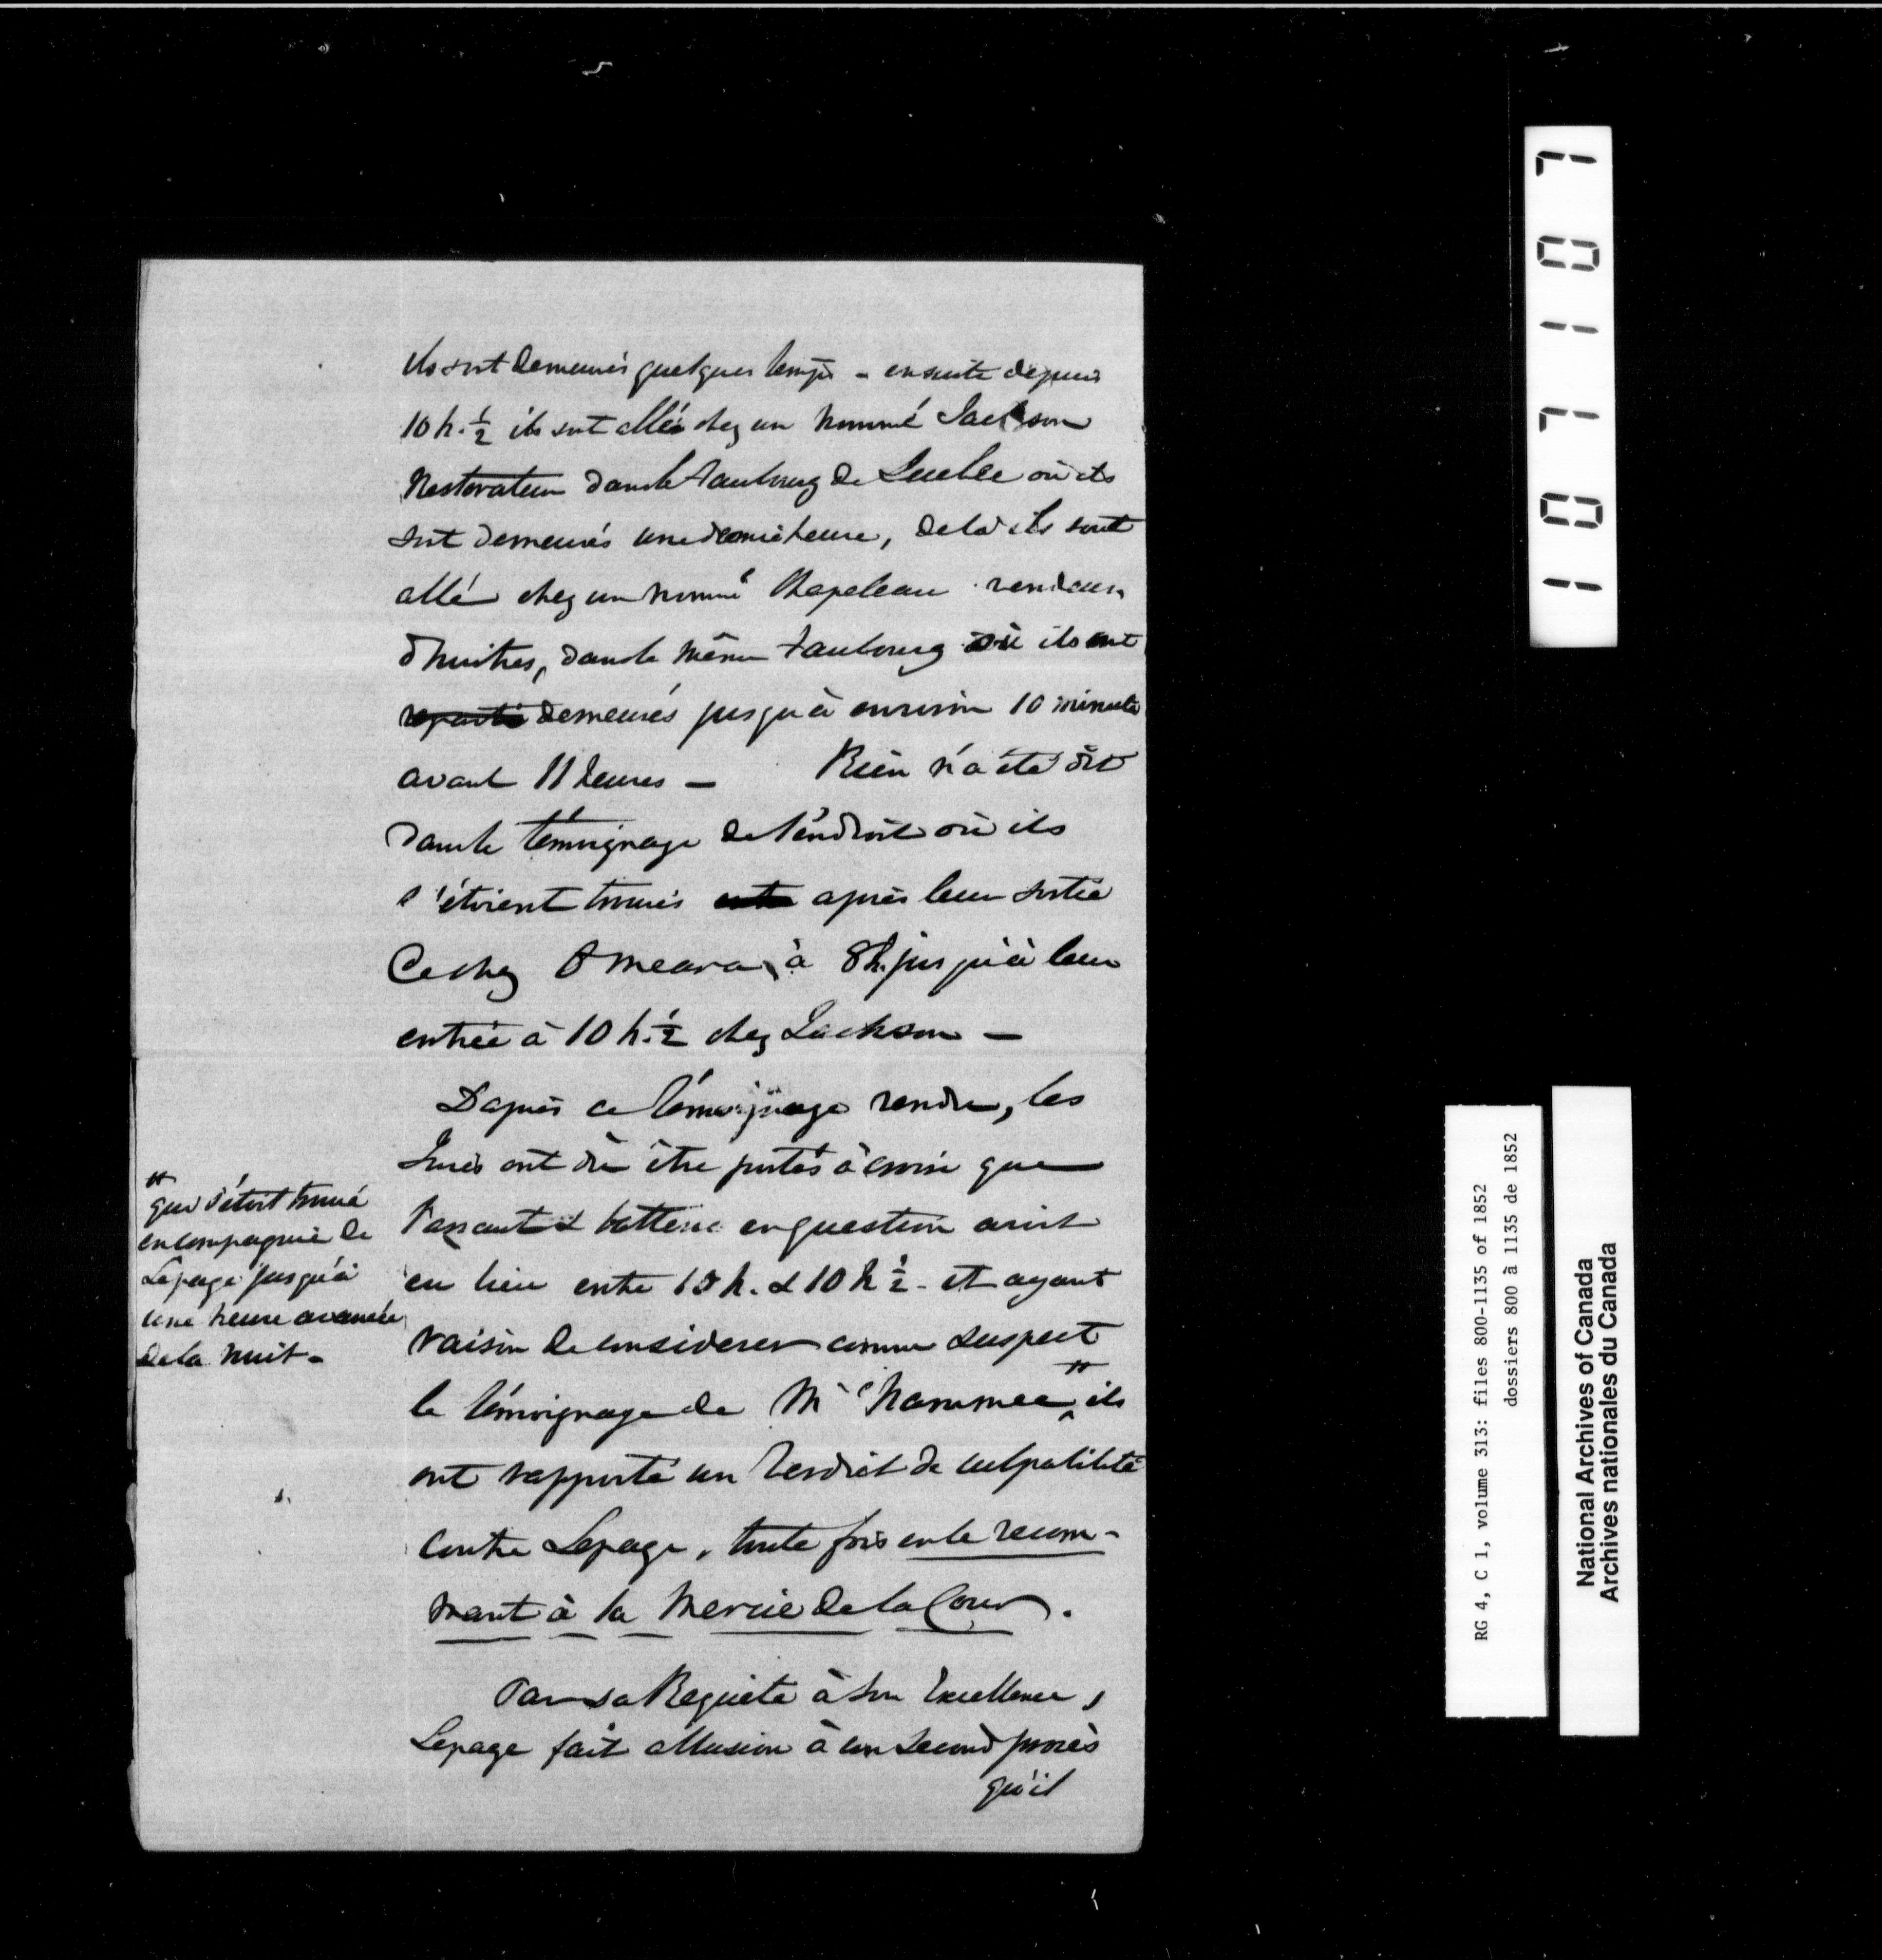 ils sont demeurés quelques temps - ensuite depuis
10 h. ½ ils sont allés chez un nommé Jackson
Restorateur dans le faubourg de Quebec où ils
sont demeurés une demie heure, de là ils sont
allé chez un nommé Chapeleau vendeur
d'huitres, dans le même faubourg où ils ont
demeurés jusqu'à environ 10 minutes
avant 11 heures - Rien n'a été dit
dans le témoignage de l'endroit où ils
s'étoient trouvés après leur sortie
de chez Omeara, à 8 h. jusqu'à leur
entrée à 10 h. ½ chez Jackson -
D'après ce témoignage rendu, les
Jurés ont dû être portés à croire que
l'assaut & batterie en question avoit
eu lieu entre 10 h. & 10 h ½ - et ayant
raison de considerer comme suspect
le témoignage de Mc Nammee " ils
ont rapporté un Verdict de culpabilité
contre Lepage, toute fois en le recom-
mant à la Mercie de la Cour.
"
qui s'étoit trouvé
en compagnie de
Lepage jusqu'à
une heure avancée
de la nuit -
Par sa Requête à Son Excellence,
Lepage fait allusion à un second procès
qu'il
1071107
RG 4, C 1, volume 313: files 800-1135 of 1852
dossiers 800 à 1135 de 1852
National Archives of Canada
Archives nationales du Canada